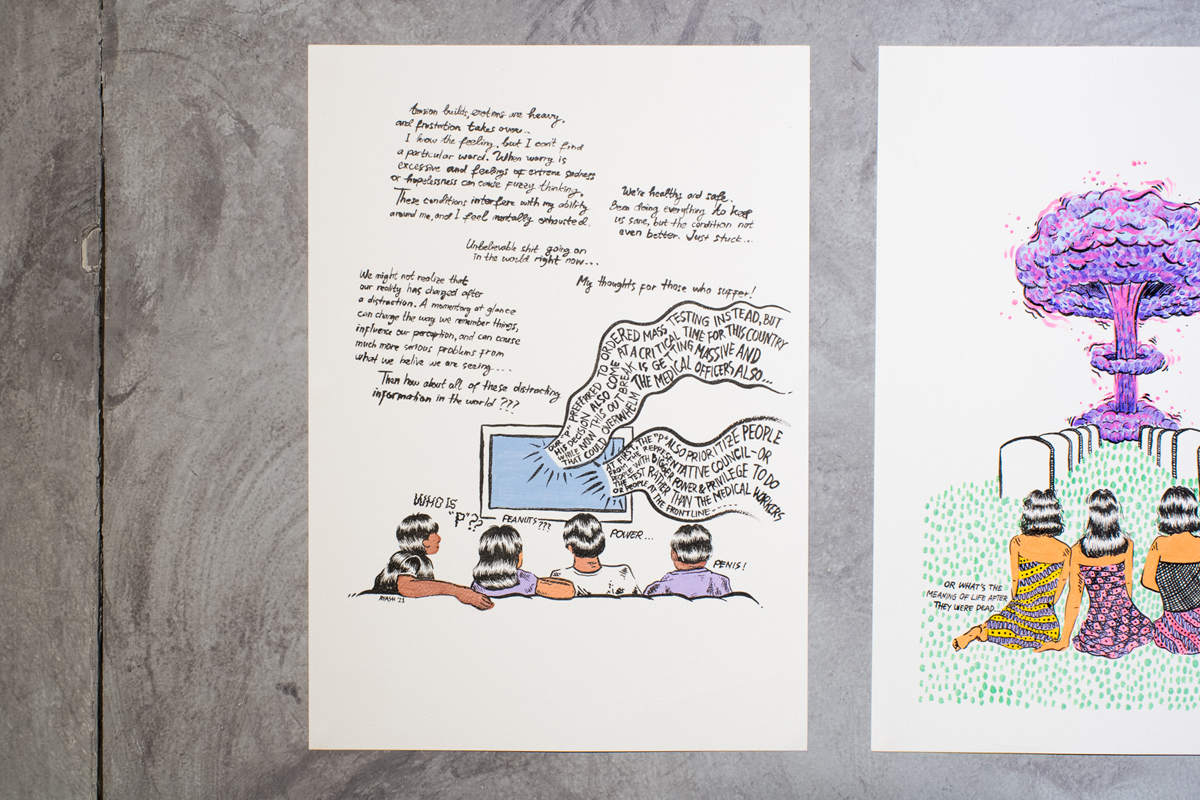 tension builds, emotions are heavy,
and frustation takes over..
I know the feeling, but I can't find
a particular word. When worry is
excessive and feelings of extreme sadness
or hopelessness can cause fuzzy thinking.
These conditions interfere with my ability
around me, and I feel mentally exhausted.
We're healthy and safe,
Been doing everything to keep
us sane, but the condition not
even better. Just stuck...
Unbelievable shit going on
in the world right now...
My thoughts for those who suffer!
We might not realize that
our reality has changed after
a distraction. A momentary at glance
can change the way we remember things,
influence our perception, and can cause
much more serious problems from
what we belive we are seeing....
Then how about all of these distracting
information in the world ???
OUR "P" PREFERRED TO ORDERED MASS TESTING INSTEAD, BUT
HIS DECISION ALSO COME AT A CRITICAL TIME FOR THIS COUNTRY
WHILE NOW THIS OUTBREAK IS GETTING MASSIVE AND
THAT COULD OVERWHELM THE MEDICAL OFFICERS ALSO...
AT FIRST, THE "P" ALSO PRIORITIZE PEOPLE
FROM THE REPRESENTATIVE COUNCIL-OR
PEOPLE WITH BIGGER POWER & PRIVILEGE TO DO
THE TEST RATHER THAN THE MEDICAL WORKERS
OR PEOPLE AT THE FRONTLINE
WHO IS
"P"??
PEANUTS???
POWER...
PENIS!
AYASH '21
OR WHAT'S THE
MEANING OF LIFE AFTER
THEY WERE DEAD...